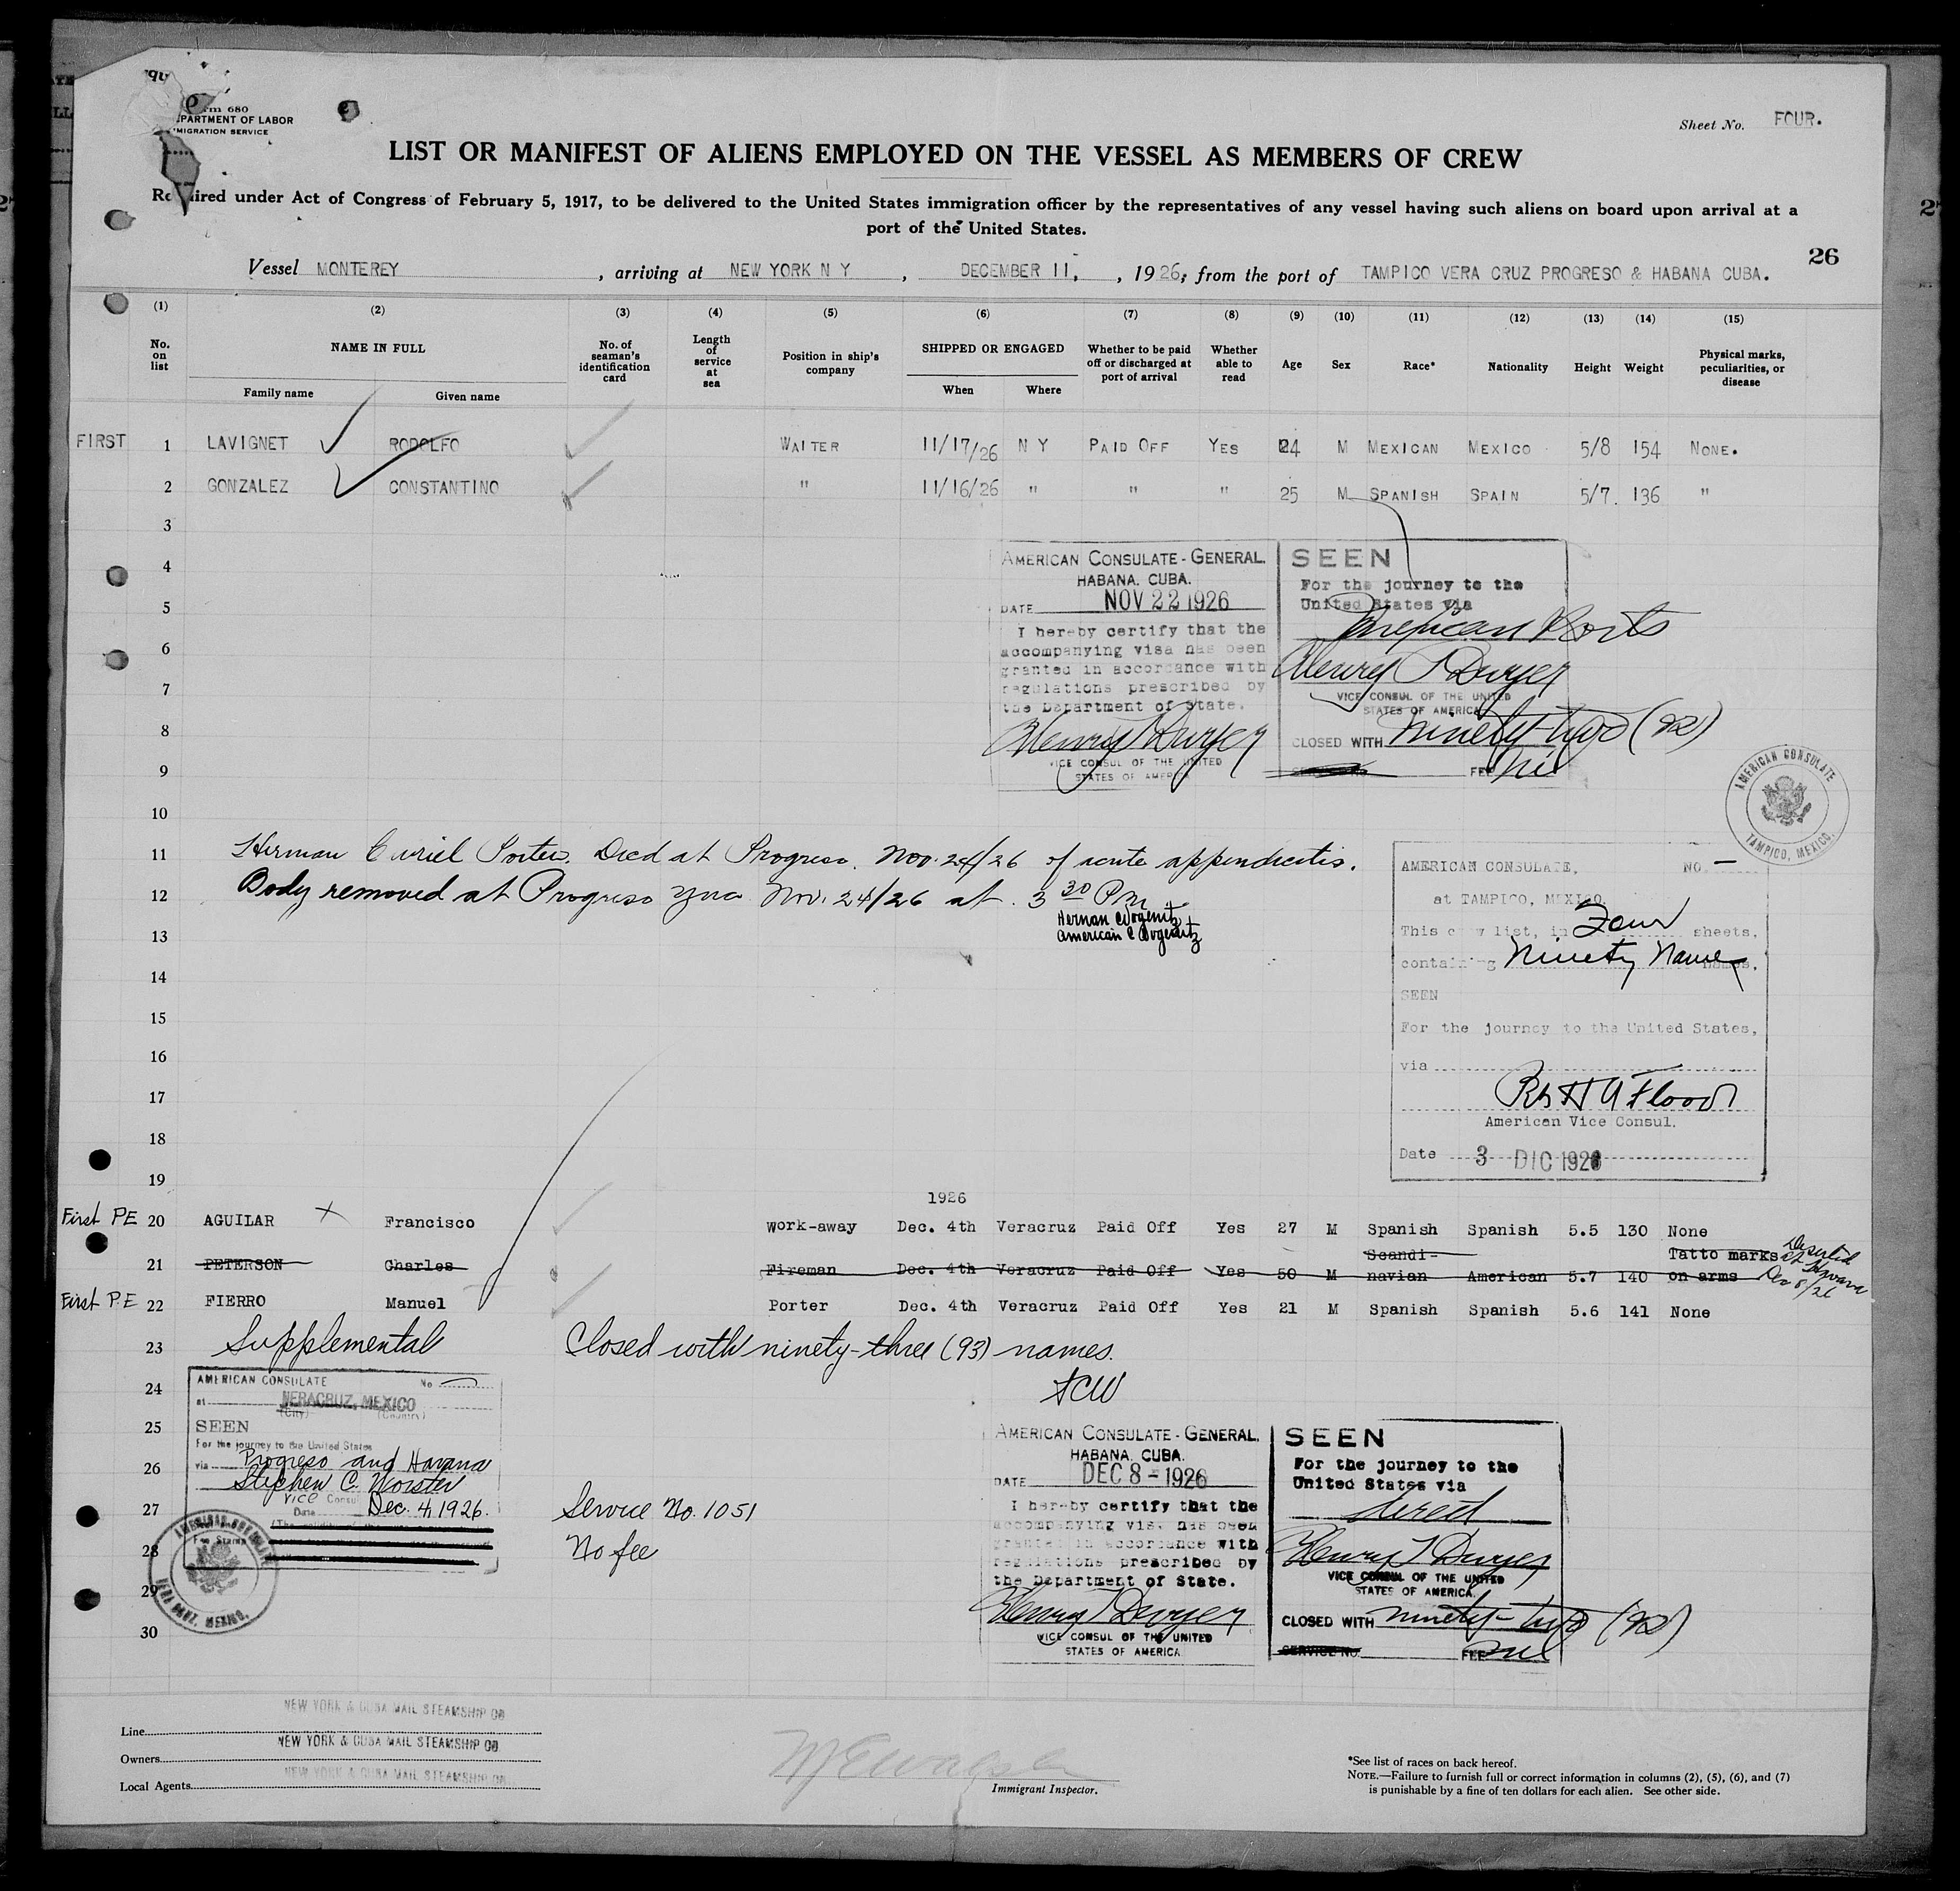 Form 680
DEPARTMENT OF LABOR
IMMIGRATION SERVICE
Sheet No. FOUR.
LIST OR MANIFEST OF ALIENS EMPLOYED ON THE VESSEL AS MEMBERS OF CREW
Required under Act of Congress of February 5, 1917, to be delivered to the United States immigration officer by the representatives of any vessel having such aliens on board upon arrival at a
port of the United States.
26
Vessel MONTEREY, arriving at NEW YORK N Y, DECEMBER 11, , 1926, from the port of TAMPICO VERA CRUZ PROGRESO & HABANA CUBA.
(1) (2) (3) (4) (5) (6) (7) (8) (9) (10) (11) (12) (13) (14) (15)
No. on list NAME IN FULL Family name Given name No. of seaman's identification card Length of service at sea Position in ship's company SHIPPED OR ENGAGED When Where Whether to be paid off or discharged at port of arrival Whether able to read Age Sex Race* Nationality Height Weight Physical marks, peculiarities, or disease
FIRST 1 LAVIGNET RODOLFO WAITER 11/17/26 N Y PAID OFF YES 24 M MEXICAN MEXICO 5/8 154 NONE.
2 GONZALEZ CONSTANTINO " 11/16/26 " " " 25 M SPANISH SPAIN 5/7. 136 "
3
4
5
6
7
8
9
10
AMERICAN CONSULATE-GENERAL.
HABANA. CUBA.
DATE NOV 22 1926
I hereby certify that the
accompanying visa has been
granted in accordance with
regulations prescribed by
the Department of State.
Henry T Dwyer
VICE CONSUL OF THE UNITED
STATES OF AMERICA
SEEN
For the journey to the
United States via
Mexican Ports
Henry T Dwyer
VICE CONSUL OF THE UNITED
STATES OF AMERICA
CLOSED WITH ninety-two (92)
FEE nil
AMERICAN CONSULATE
TAMPICO, MEXICO.
11 Herman Curiel Porter. Died at Progreso. Nov. 24/26 of acute appendicitis.
12 Body removed at Progreso Yuc Nov. 24/26 at 3 30 P.M.
13
14
15
16
17
18
19
AMERICAN CONSULATE, NO. —
at TAMPICO, MEXICO.
This crew list, in Four sheets,
containing Ninety Names names.
SEEN
For the journey to the United States,
via
Flood
American Vice Consul.
Date 3 DIC 1926
1926
First PE 20 AGUILAR Francisco Work-away Dec. 4th Veracruz Paid Off Yes 27 M Spanish Spanish 5.5 130 None
21 PETERSON Charles Fireman Dec. 4th Veracruz Paid Off Yes 50 M Scandi-navian American 5.7 140 Tatto marks on arms
Deserted at Havana Dec 8/26
First P.E 22 FIERRO Manuel Porter Dec. 4th Veracruz Paid Off Yes 21 M Spanish Spanish 5.6 141 None
23 Supplemental Closed with ninety-three (93) names.
SCW
24
25
26
27
28
29
30
AMERICAN CONSULATE No
at VERACRUZ, MEXICO
(City) (Country)
SEEN
For the journey to the United States
via Progreso and Havana
Stephen C. Worster
Vice Consul
Date Dec. 4, 1926.
Fee Stamp
AMERICAN CONSULATE
VERA CRUZ, MEXICO.
Service No. 1051
No fee
AMERICAN CONSULATE-GENERAL.
HABANA. CUBA.
DATE DEC 8 - 1926
I hereby certify that the
accompanying visa has been
granted in accordance with
regulations prescribed by
the Department of State.
Henry T Dwyer
VICE CONSUL OF THE UNITED
STATES OF AMERICA
SEEN
For the journey to the
United States via
direct
Henry T Dwyer
VICE CONSUL OF THE UNITED
STATES OF AMERICA.
CLOSED WITH ninety-two (92)
SERVICE NO. FEE nil
Line NEW YORK & CUBA MAIL STEAMSHIP CO
Owners NEW YORK & CUBA MAIL STEAMSHIP CO
Local Agents NEW YORK & CUBA MAIL STEAMSHIP CO
Immigrant Inspector.
*See list of races on back hereof.
NOTE.—Failure to furnish full or correct information in columns (2), (5), (6), and (7)
is punishable by a fine of ten dollars for each alien. See other side.